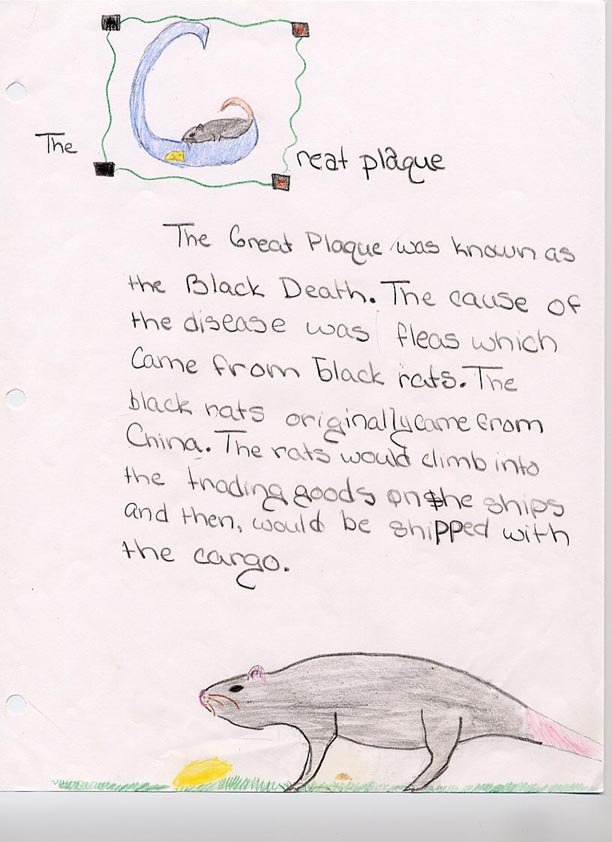 The Great plaque
The Great Plaque was known as
the Black Death. The cause of
the disease was fleas which
Came from black rats. The
black rats originally came from
China. The rats would climb into
the trading goods on the ships
and then, would be shipped with
the cargo.